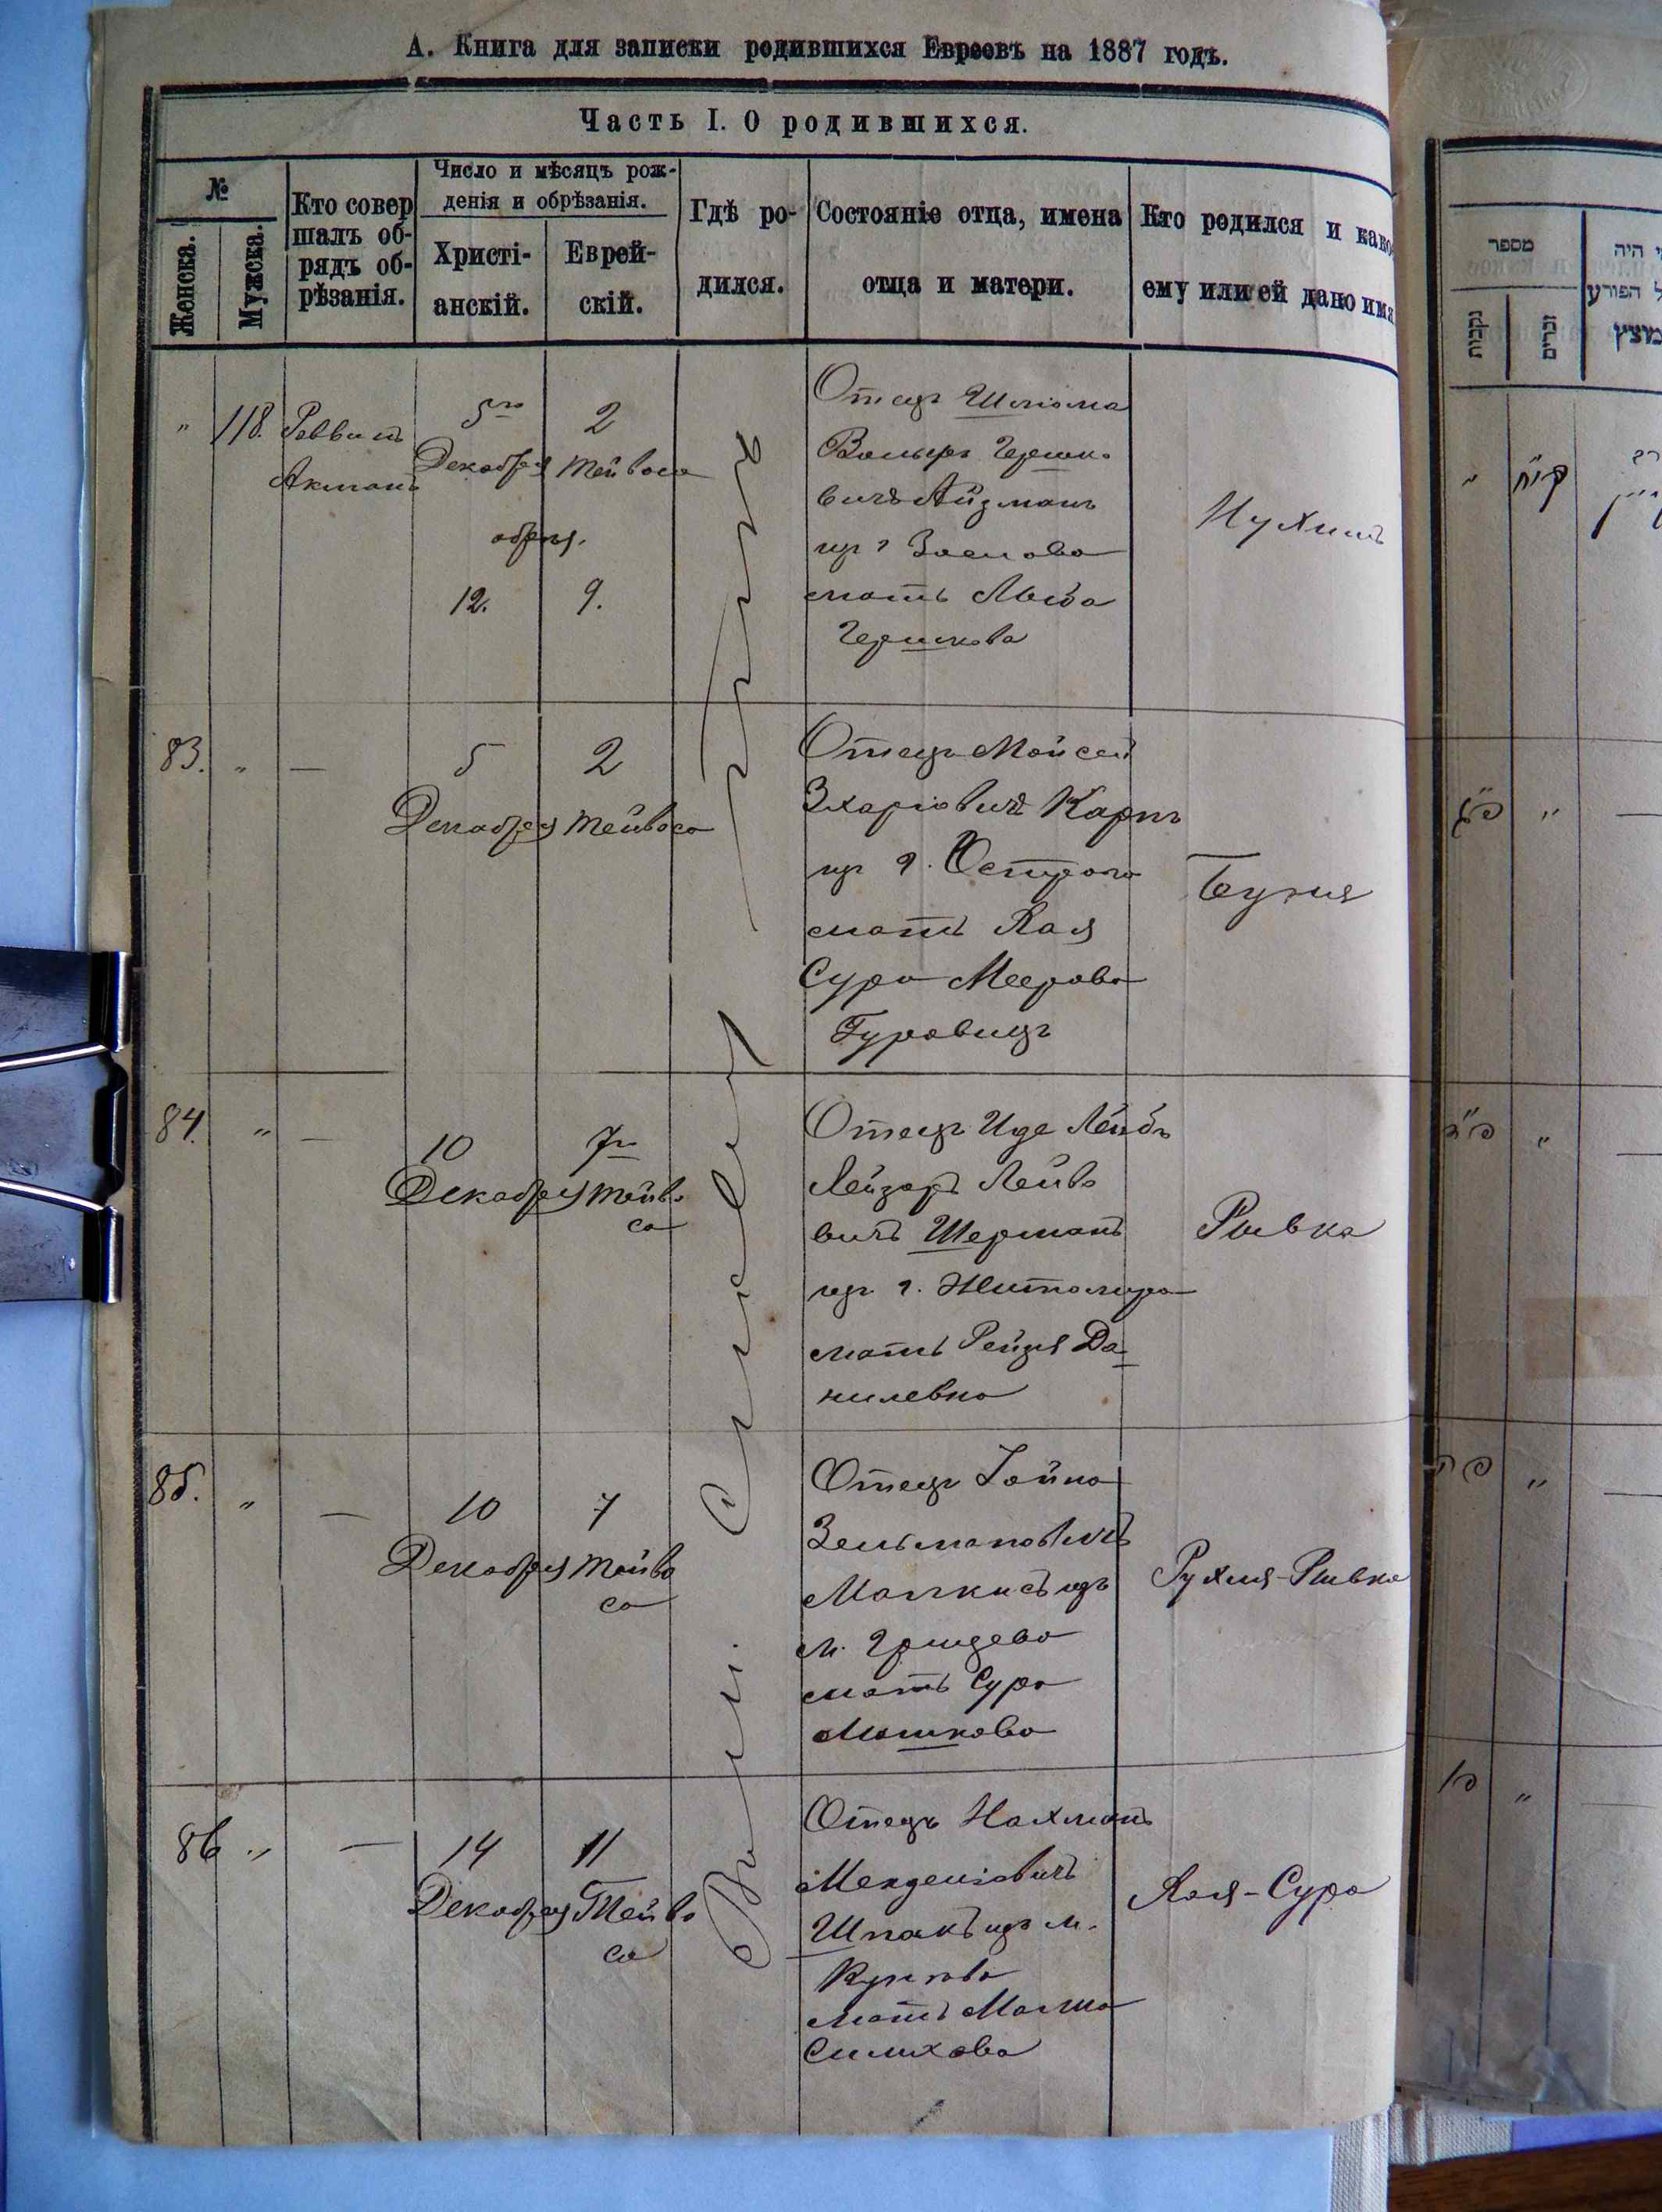 А. Книга для записки родившихся Евреевъ на 1887 годъ.
Часть I. О родившихся.
№
Женска.
Мужска.
Кто совер
шалъ об-
рядъ об-
рѣзанія.
Число и мѣсяцъ рож-
денія и обрѣзанія.
Христі-
анскій.
Еврей-
скій.
Гдѣ ро-
дился.
Состояніе отца, имена
отца и матери.
Кто родился и како
ему или ей дано имя
„ 118. Раввинъ
Акманъ
5го
Декабря
обрез.
12.
2
Тейвоса
9.
Отецъ Шлiома
Гершко
вичъ Айзманъ
изъ г Заслава
мать
Гершкова
Нухимъ
83. „ —
5
Декабря
2
Тейвоса
Отецъ Мойсей
Карпъ
изъ г. Острога
мать Хая
Сура Меерова
Гуровицъ
84. „ —
10
Декабря
7го
Тейво
са
Отецъ Иде Лейбъ
Лейзоръ Лейбо
вичъ Шерманъ
изъ г. Житомира
мать Рейзя Да
нилевна
Рывка
85. „ —
10
Декабря
7
Тейво
са
Отецъ Іойна
Зельмановичъ
изъ
м. Грицева
мать Сура
Мошкова
Рухля-Рывка
86 „ —
14
Декабря
11
Тейво
са
Отецъ Нахманъ
Менделіовичъ
Шпакъ изъ м.
мать Малка
Хая-Сура
מספר
נקבות
זכרים
י היה
ל הפורע
מוצץ
„ קי״ח
פ״ג „ —
פ״ד „ —
פ״ה „ —
פ״ו „ —